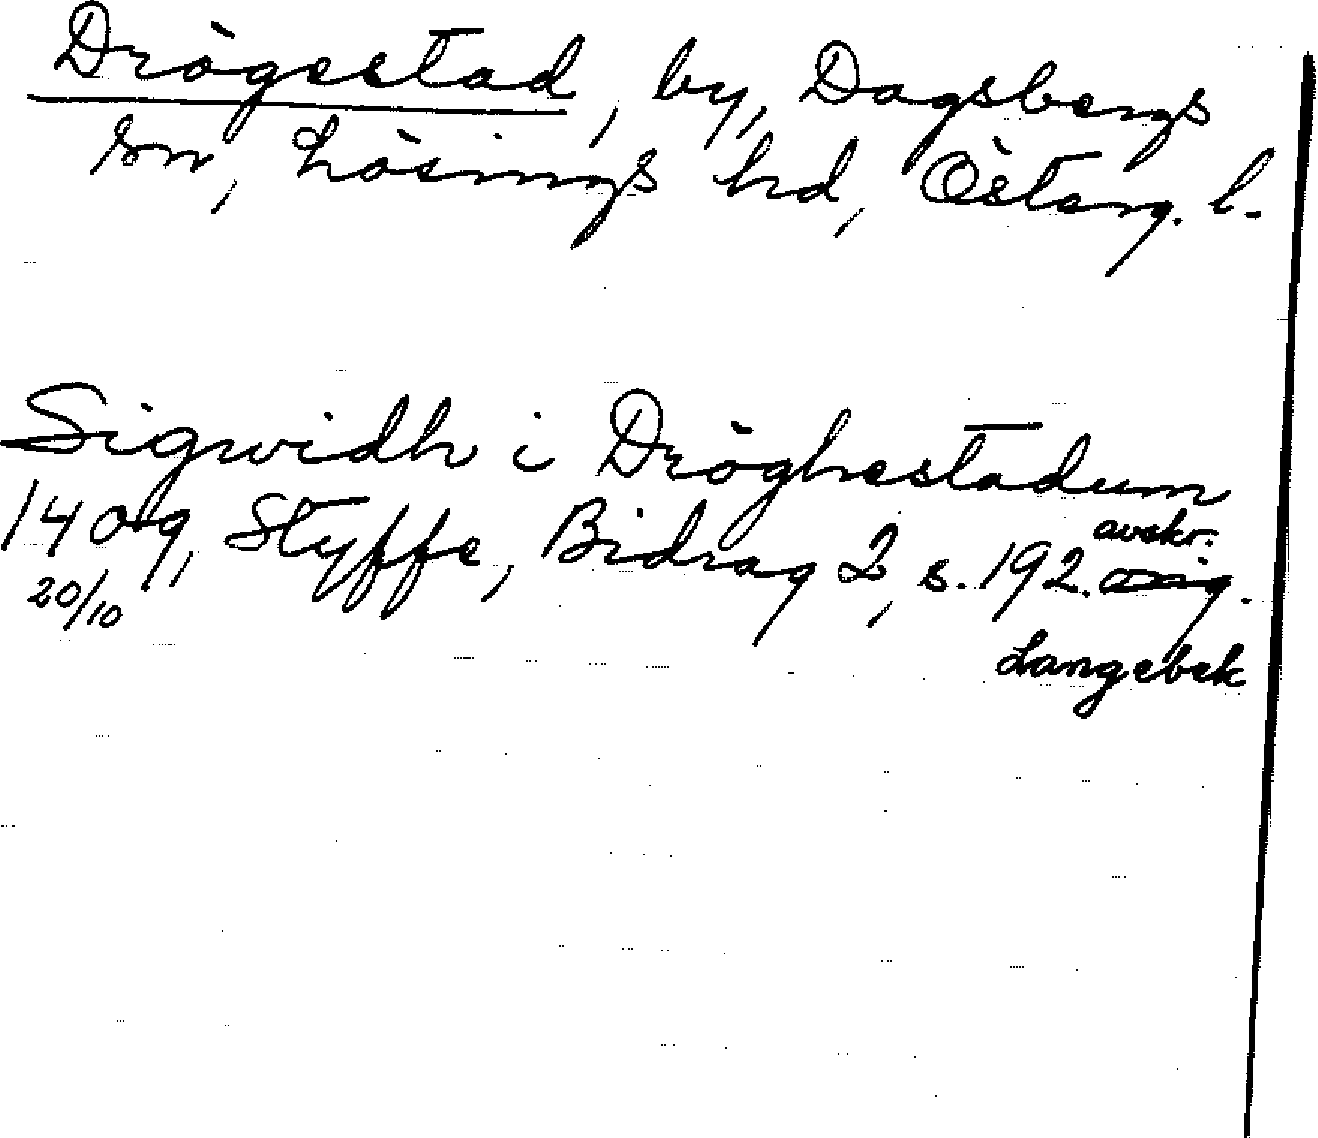 Drögestad, by, Dagsbergs
sn, Lösings hd, Österg. l.
Sigwidh i Dröghestadum
1409, Styffe, Bidrag 2, s. 192. avskr.
20/10
Langebek